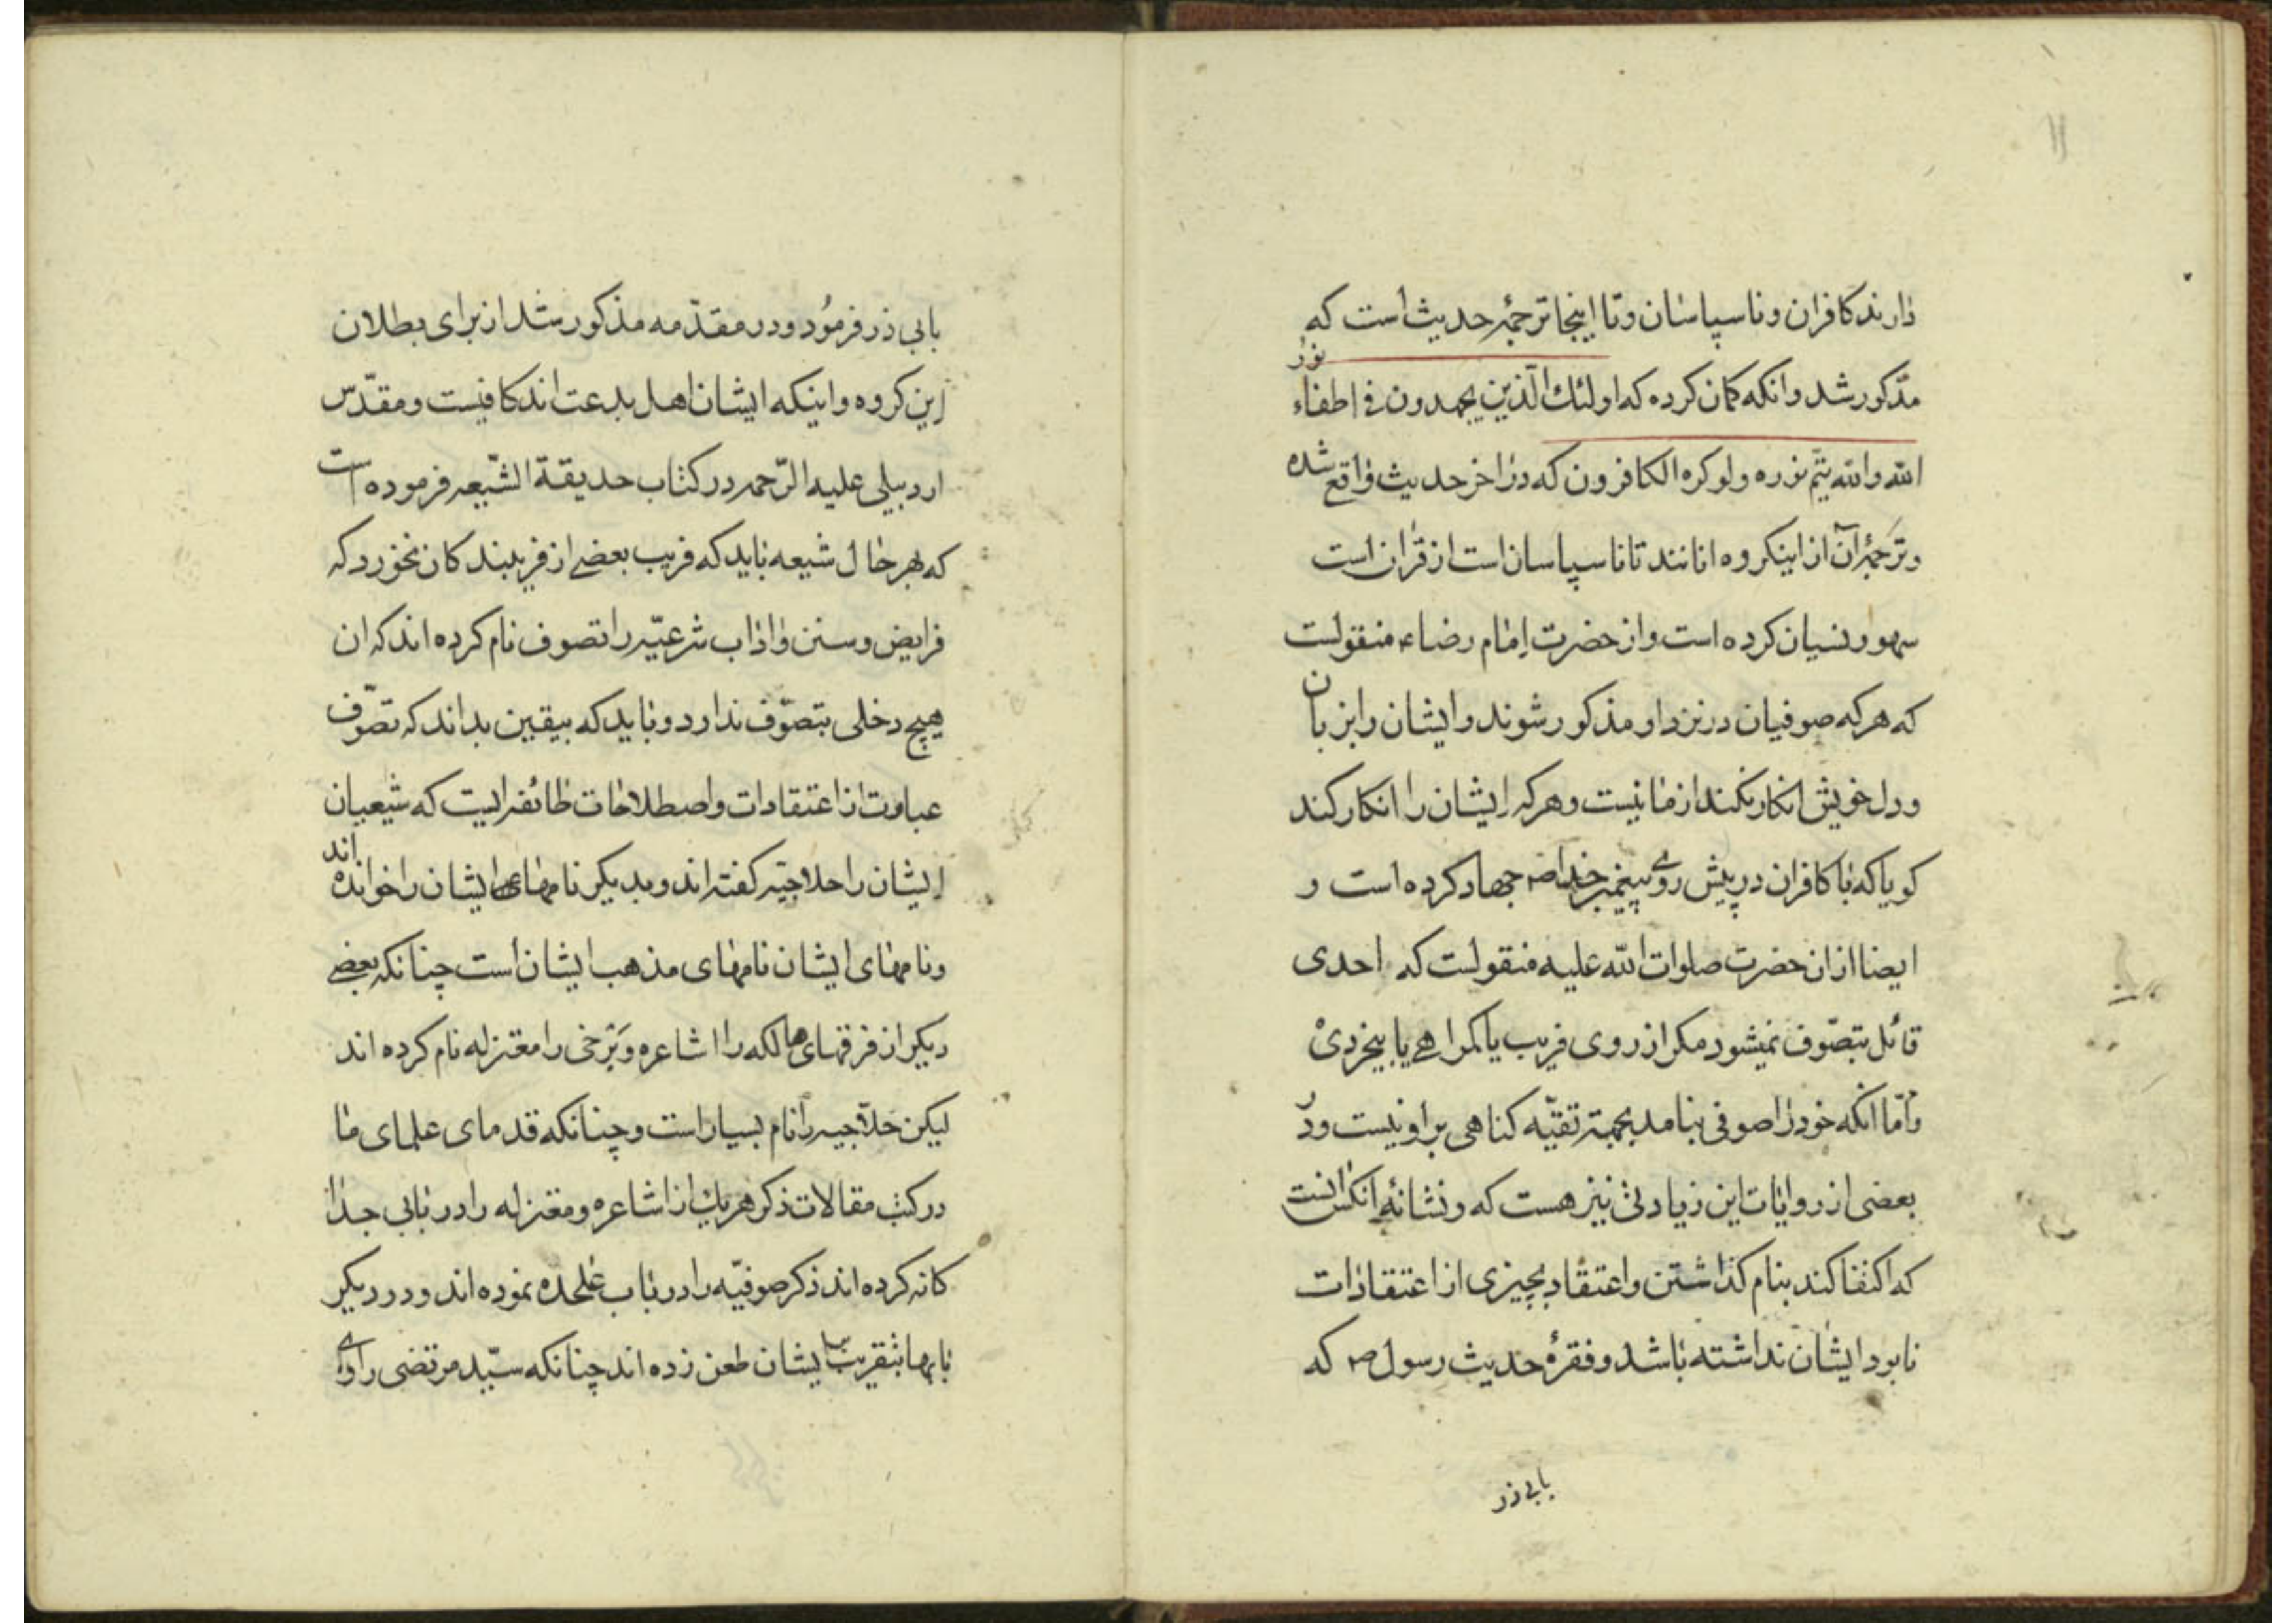 ۱۱
دارند کافران و ناسپاسان و تا اینجا ترجمهٔ حدیث است که
مذکور شد و انکه کمان کرده که اولئك الّذین یجهدون فی اطفاء نور
الله والله یتم نوره ولو کره الکافرون که در اخر حدیث واقع شده
و ترجمهٔ آن از اینکروه انانند تا ناسپاسان است از قران است
سهو و نسیان کرده است و از حضرت اِمام رضا ع منقولست
که هرکه صوفیان در نزد او مذکور شوند و ایشان را بزبان
و دل خویش انکار نکند از ما نیست و هرکه ایشان را انکار کند
کویا که با کافران در پیش روی پیغمبر خدا ص جهاد کرده است و
ایضا ازان حضرت صلوات الله علیه منقولست که احدی
قائل بتصوّف نمیشود مکر از روی فریب یا کمراهی یا بیخردی
و امّا انکه خود را صوفی بنامد بجهة تقیّه کناهی بر او نیست و در
بعضی از روایات این زیادتی نیز هست که و نشانهٔ انکس انست
که اکتفا کند بنام کذاشتن و اعتقاد بچیزی از اعتقادات
نابود ایشان نداشته باشد و فقرهٔ حدیث رسول ص که
بابی ذر
بابی ذر فرمُود و در مقدّمه مذکور شد از برای بطلان
این کروه و اینکه ایشان اهل بدعت اند کافیست و مقدّس
اردبیلی علیه الرّحمه در کتاب حدیقة الشّیعه فرموده است
که بهر حال شیعه باید که فریب بعضی از فریبندکان نخورد که
فرایض و سنن و اداب شرعیّه را تصوف نام کرده اند که ان
هیچ دخلی بتصوّف ندارد و باید که بیقین بداند که تصوّف
عبارت از اعتقادات و اصطلاحات طائفه ایست که شیعیان
ایشان را حلاجیّه کفته اند و بدیکر نامهای ایشان را خوانده اند
و نامهای ایشان نامهای مذهب ایشان است چنانکه بعضی
دیکر از فرقهای هالکه را اشاعره و برخی را معتزله نام کرده اند
لیکن حلاّجیه را نام بسیار است و چنانکه قدمای علمای ما
در کتب مقالات ذکر هر یك از اشاعره و معتزله را در بابی جدا
کانه کرده اند ذکر صوفیّه را در باب علحده نموده اند و در دیکر
بابها بتقریب ایشان طعن زده اند چنانکه سیّد مرتضی رازی